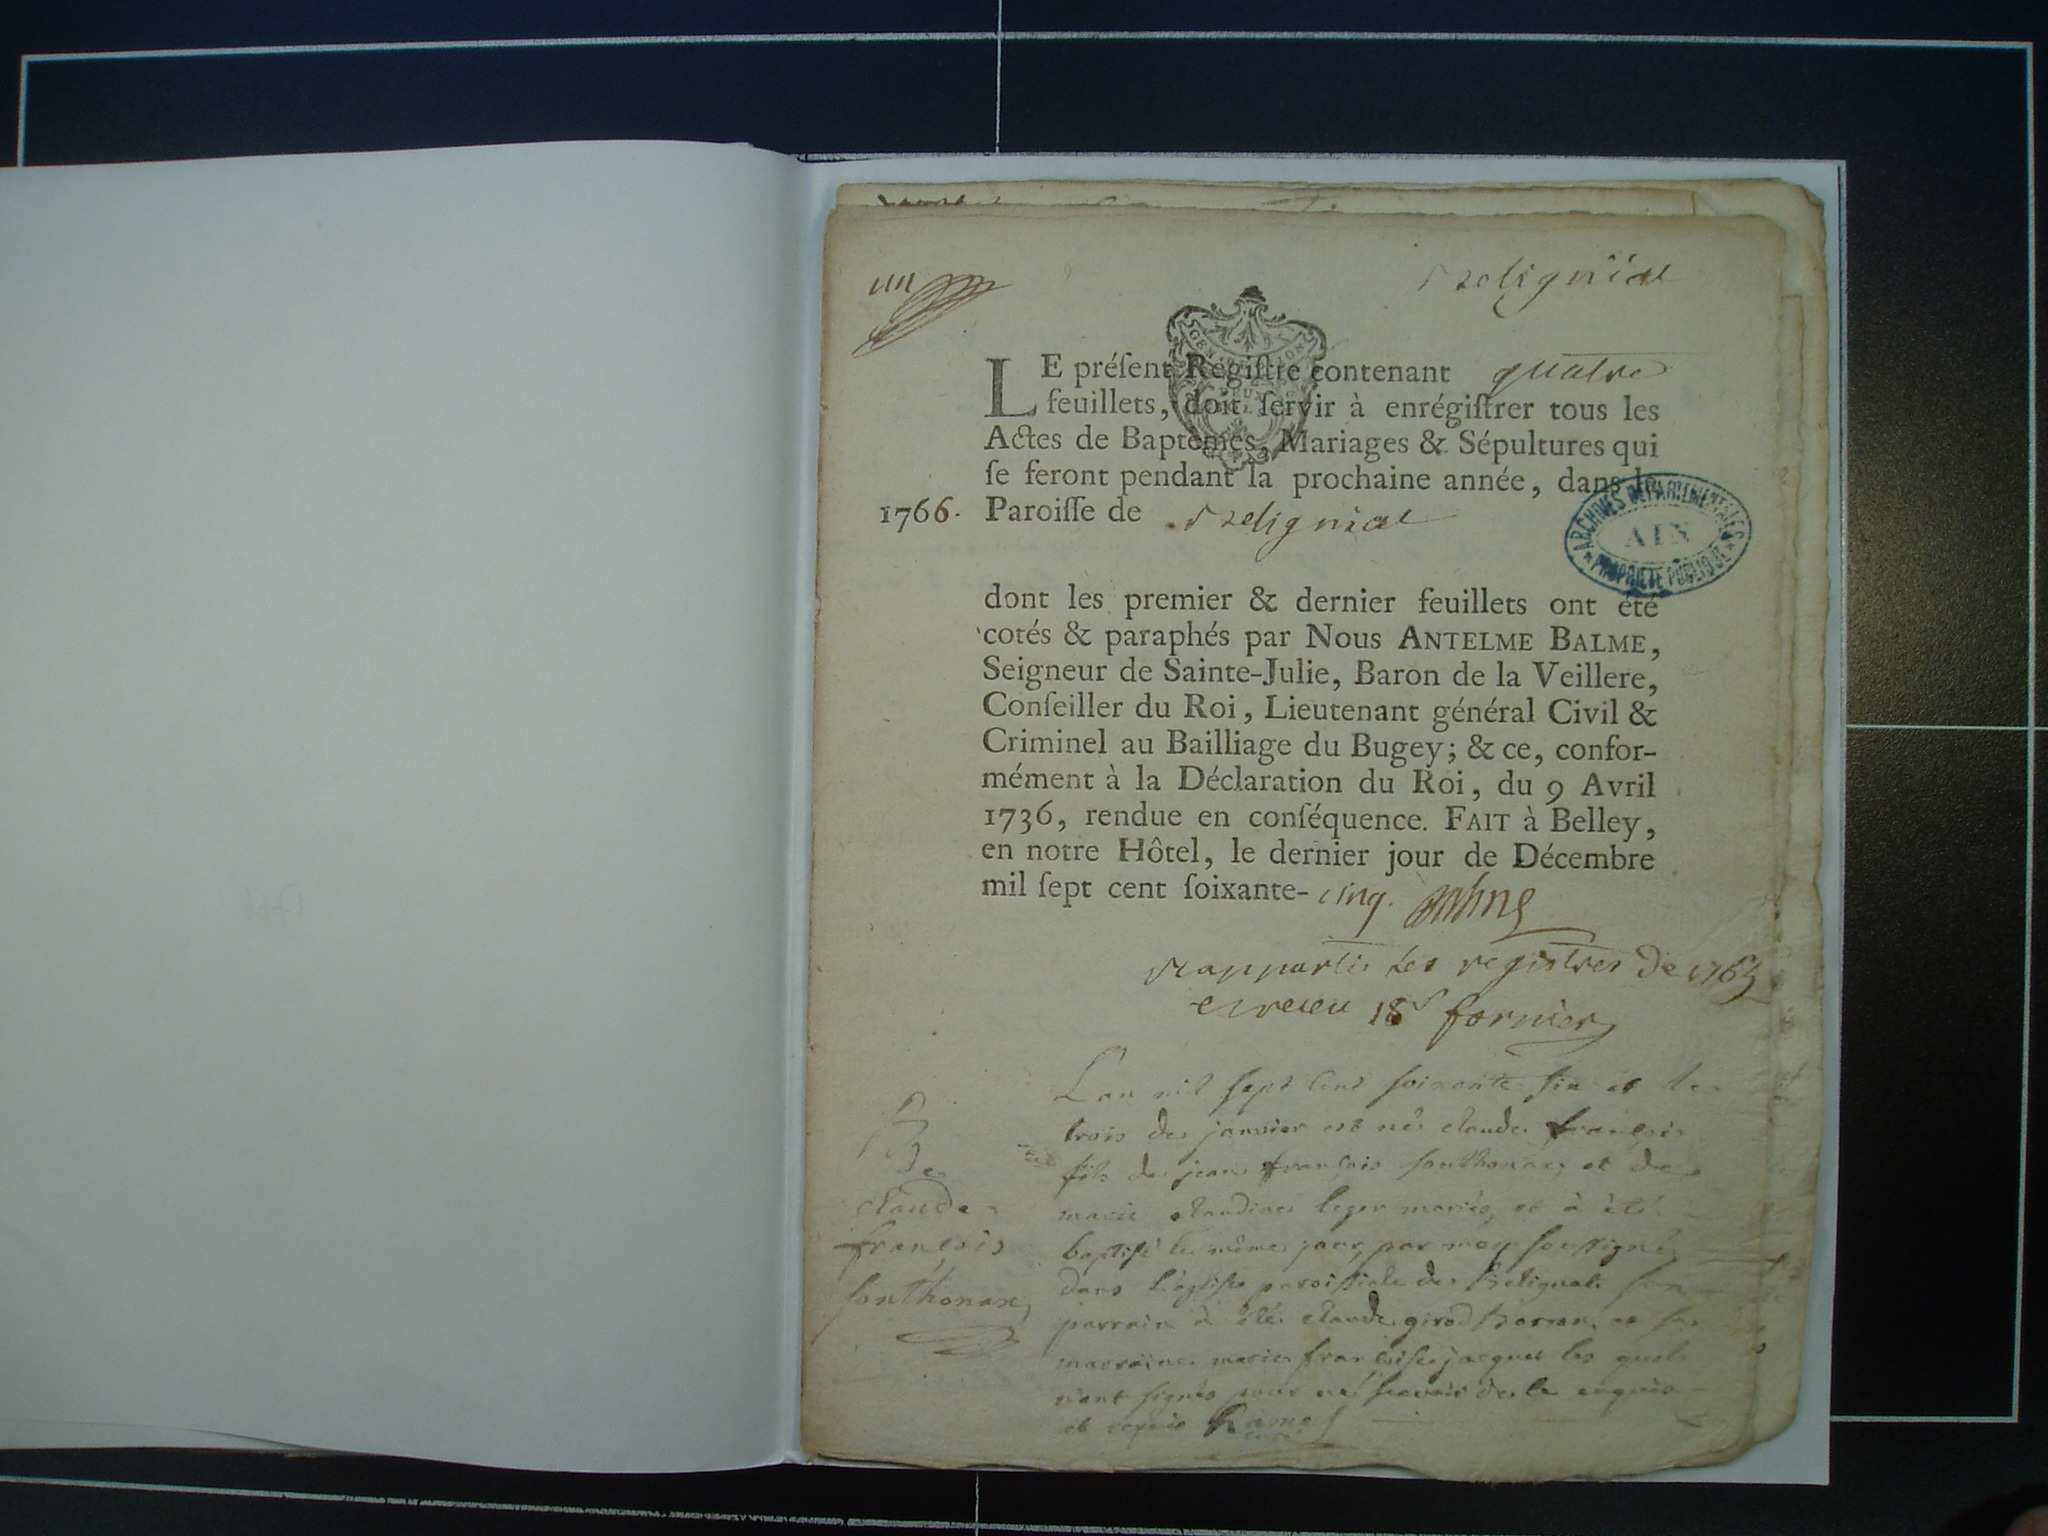 un
Relignial
GEN
LE préſent Regiſtre contenant quatre
feuillets, doit ſervir à enrégiſtrer tous les
Actes de Baptêmes, Mariages & Sépultures qui
ſe feront pendant la prochaine année, dans la
1766. Paroiſſe de Relignial
ARCHIVES DÉPARTEMENTALES
AIN
PROPRIÉTÉ PUBLIQUE
dont les premier & dernier feuillets ont été
cotés & paraphés par Nous ANTELME BALME,
Seigneur de Sainte-Julie, Baron de la Veillere,
Conſeiller du Roi, Lieutenant général Civil &
Criminel au Bailliage du Bugey; & ce, confor-
mément à la Déclaration du Roi, du 9 Avril
1736, rendue en conſéquence. FAIT à Belley,
en notre Hôtel, le dernier jour de Décembre
mil ſept cent ſoixante- cinq. Balme
les registres de
et receu 18ˢ fornier
L'an mil sept cent soixante six et le
trois de janvier est né claude françois
fils de jean françois sonthonax et de
marie claudine leger mariés, et à été
baptisé le même jour par moy soussigné
dans l'eglise paroissiale de Belignat. son
parrain à été claude girod et sa
marraine marie françoise jacquet les quels
n'ont signés pour ne sçavoir de ce enquis
et requis
B
de
claude
françois
sonthonax